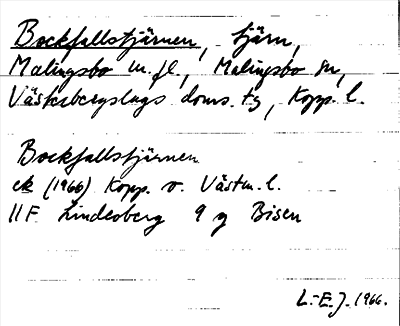 Bockfallstjärnen, tjärn,
Malingsbo m. fl., Malingsbo sn,
Västerbergslags doms. tg, Kopp. l.
Bockfallstjärnen
ek (1966) Kopp. o. Västm. l.
11F Lindesberg 9 g Bisen
L.-E.J. 1966.